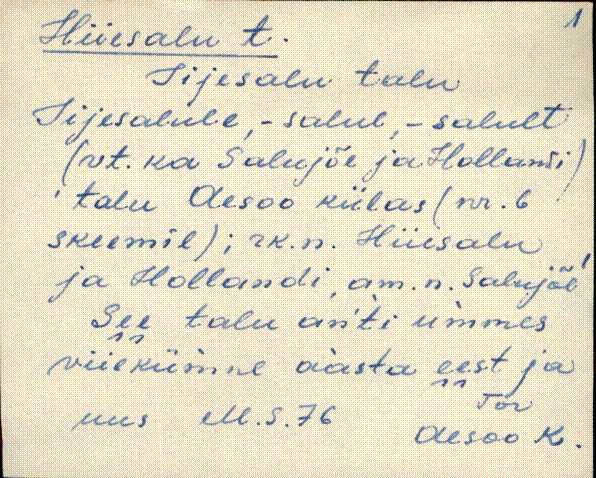 1
Hiiesalu t.
Iijesalu talu
Iijesalule, -salul, -salult
(vt. ka Salujõe ja Hollandi)
talu Aesoo külas (nr. 6
skeemil); rk.n. Hiiesalu
ja Hollandi, am.n. Salujõe
See talu an'ti ümmes
viiekümne aasta eest ja
uus M.S. 76 Tor
Aesoo K.